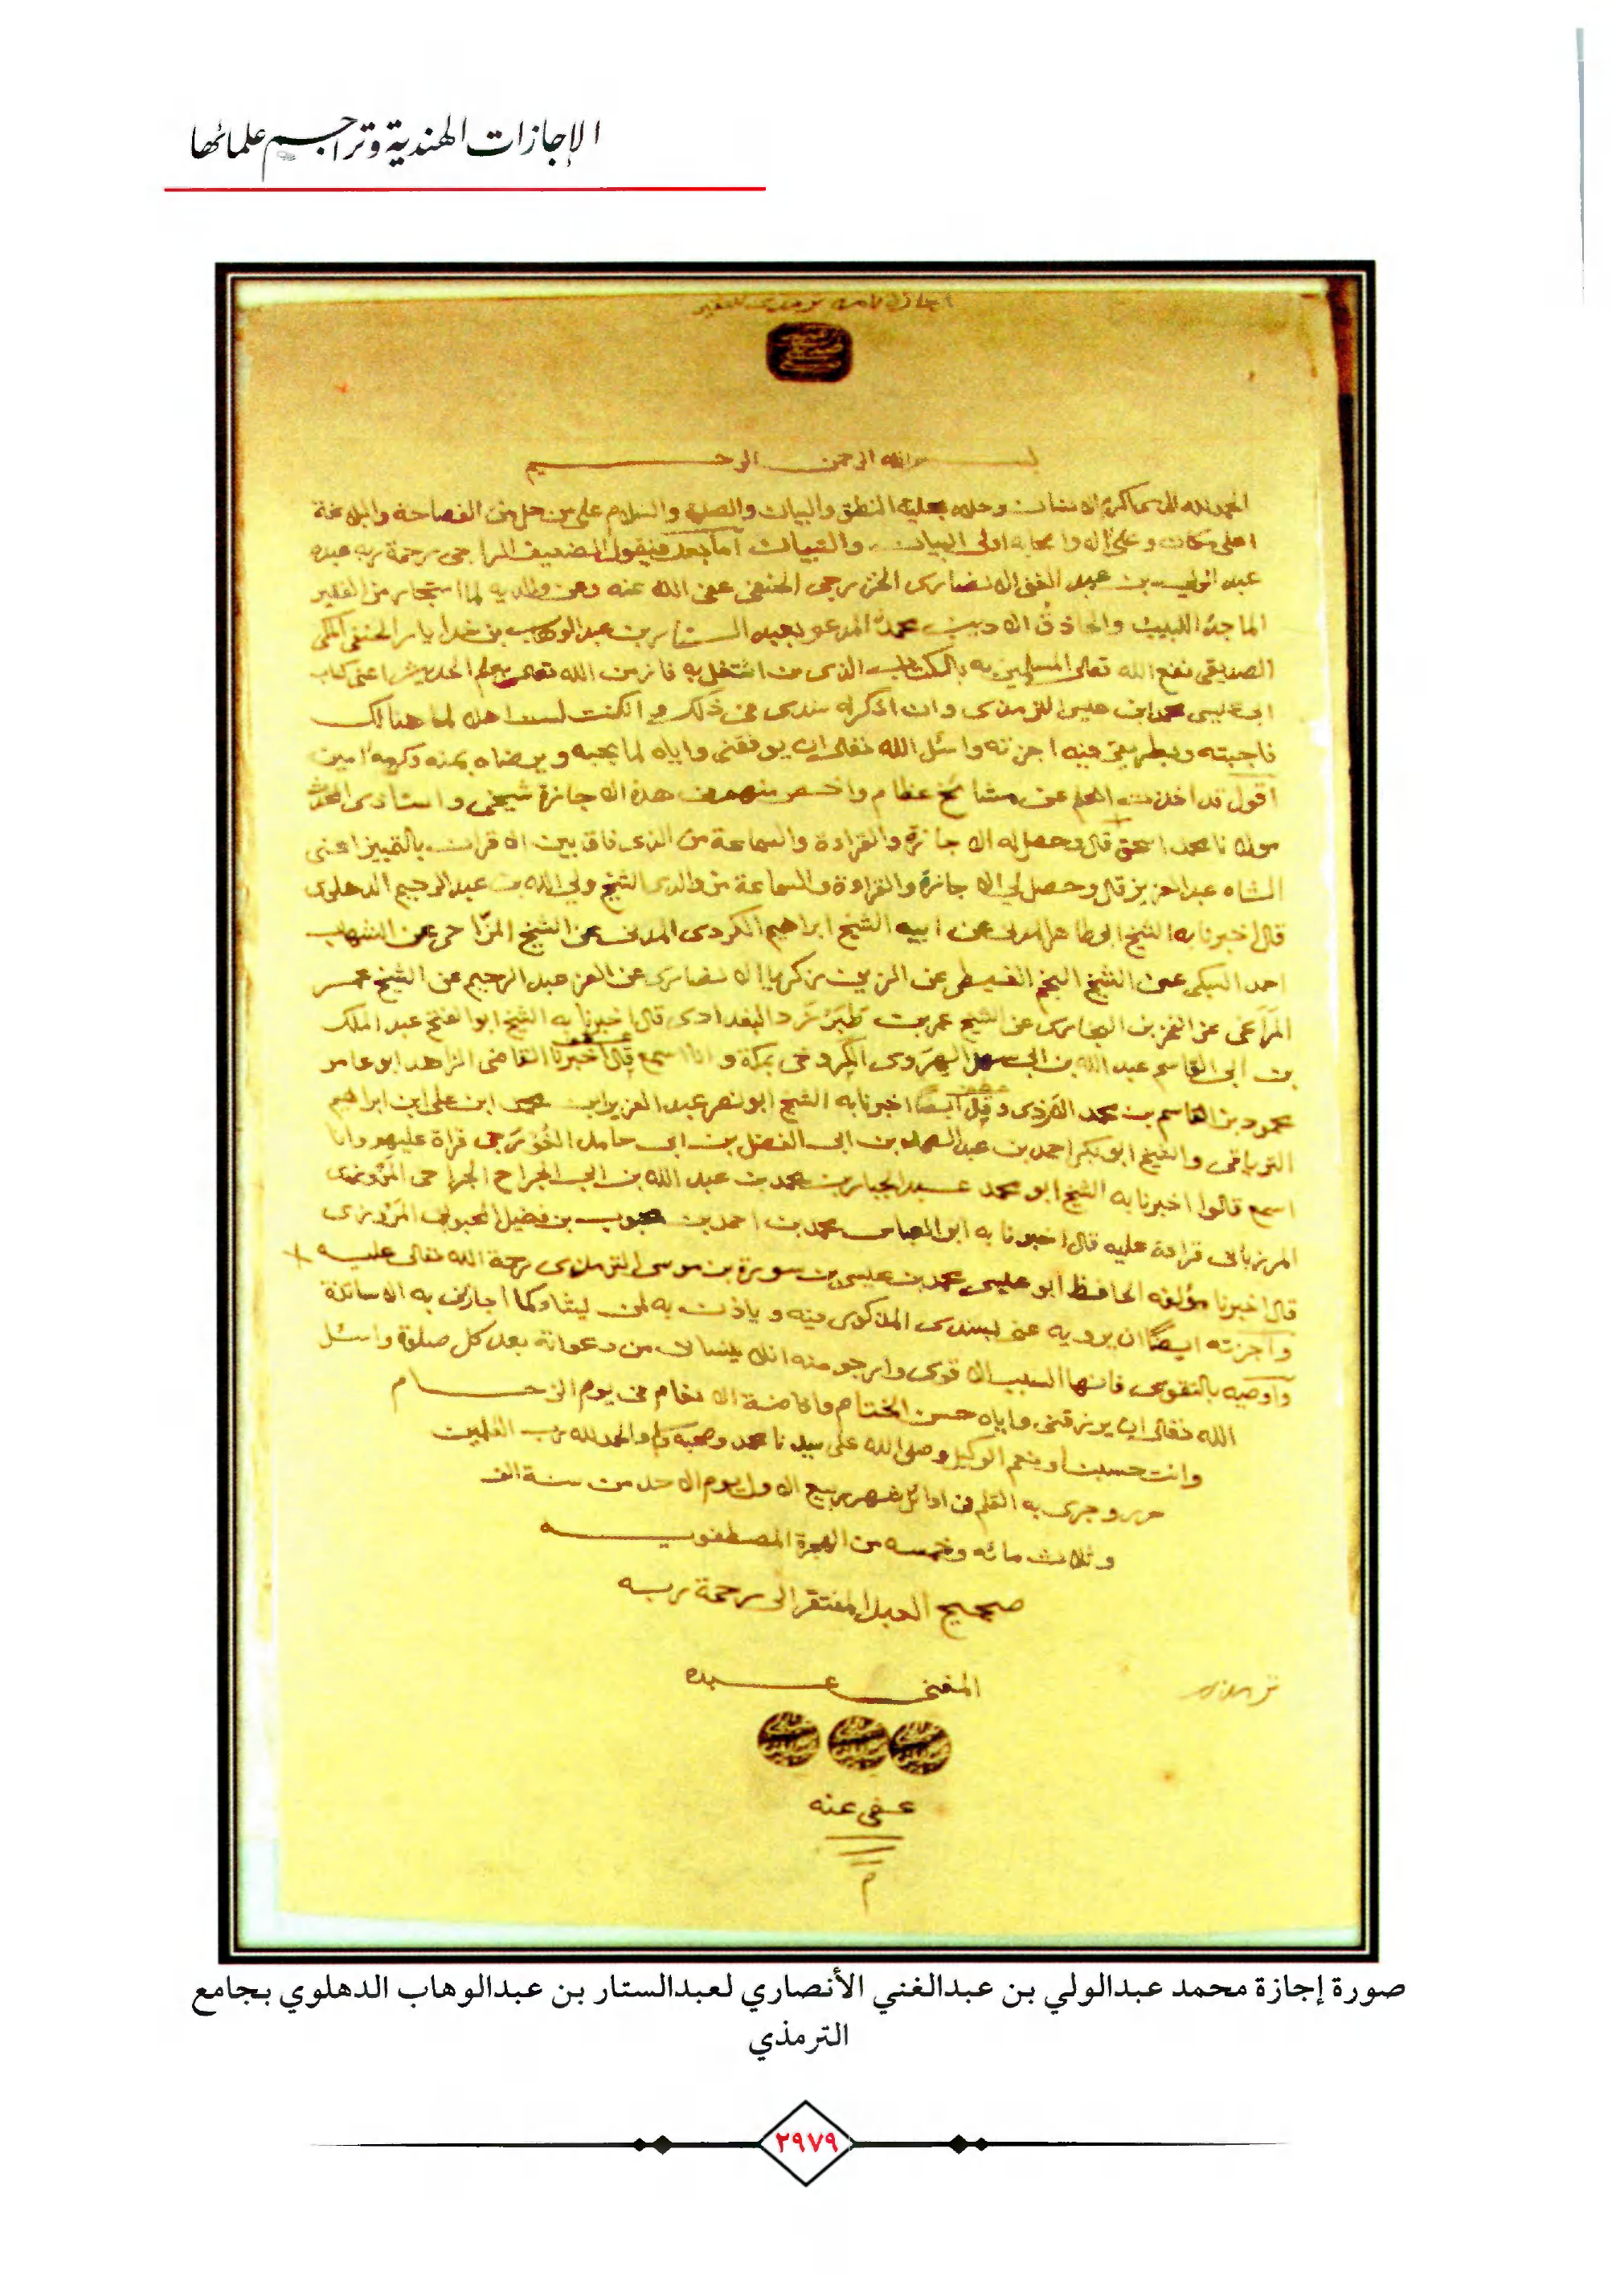 الإجازات الهندية وتراجم علمائها
بسم الله الرحمن الرحيم
الحمد لله الذي اكرم الانسان وحلاه بحلية النطق والبيان والصلوة والسلام على من حل من الفصاحة والبلاغة
اعلى مكان وعلى اله واصحابه اولى البيان والتبيان اما بعد فيقول الضعيف الراجى رحمة ربه عبده
عبد الولي بن عبد الغنى الانصارى الخزرجى الحنفى عفى الله عنه وعن والديه لما استجاز من الفقير
الماجد اللبيب والحاذق الاديب محمد المدعو بعبد الستار بن عبد الوهاب بن خدا يار الحنفى المكى
الصديقى نفع الله تعالى المسلمين به بالكتاب الذى من اشتغل به فاز من الله تعالى بعلم الحديث اعنى كتاب
ابى عيسى محمد ابن عيسى الترمذى وان اذكر له سندى فى ذلك و الكنت لست اهلا لما هنالك
فاجبته و فيه اجزته واسئل الله تعالى ان يوفقنى واياه لما يحبه ويرضاه بمنه وكرمه امين
اقول قد اخذت العلم عن مشائخ عظام واخص منهم فى هذه الاجازة شيخى واستاذى المحدث
مولانا محمد اسحق قال وحصل له الاجازة والقراءة والسماعة من الذى فاق بين الاقران بالتمييز اعنى
الشاه عبد العزيز قال وحصل لى الاجازة والقراءة والسماعة من والدى الشيخ ولي الله بن عبد الرحيم الدهلوى
قال اخبرنا به الشيخ ابو طاهر المدنى عن ابيه الشيخ ابراهيم الكردى المدنى عن الشيخ المزاحى عن الشهاب
احمد السبكى عن الشيخ النجم الغيطى عن الزين زكريا الانصارى عن العز عبد الرحيم عن الشيخ عمر
المراغى عن الفخر بن البخارى عن الشيخ عمر بن طبرزد البغدادى قال اخبرنا به الشيخ ابو الفتح عبد الملك
بن ابى القاسم عبد الله بن ابى سهل الهروى الكروخى بمكة وانا اسمع قال اخبرنا القاضى الزاهد ابو عامر
محمود بن القاسم بن محمد الازدى وقال ايضا اخبرنا به الشيخ ابو نصر عبد العزيز ابن محمد ابن على ابن ابراهيم
الترياقى والشيخ ابو بكر احمد بن عبد الصمد بن ابى الفضل بن ابى حامد الغورجى قراة عليهم وانا
اسمع قالوا اخبرنا به الشيخ ابو محمد عبد الجبار بن محمد بن عبد الله بن ابى الجراح الجراحى المروزى
المرزبانى قراءة عليه قال اخبرنا به ابو العباس محمد بن احمد بن محبوب بن فضيل المحبوبى المروزى
قال اخبرنا مؤلفه الحافظ ابو عيسى محمد بن عيسى بن سورة بن موسى الترمذى رحمة الله تعالى عليه
واجزته ايضا ان يرويه عنى بسندى المذكور فيه وياذن به لمن يشاء كما اجازنى به الاساتذة
واوصيه بالتقوى فانها السبب الاقوى وارجو منه ان لا ينسانى من دعواته بعد كل صلوة واسئل
الله تعالى ان يرزقنى واياه حسن الختام وافاضة الانعام فى يوم الزحام
وانت حسبنا ونعم الوكيل وصلى الله على سيدنا محمد وصحبه والحمد لله رب العلمين
حرر وجرى به القلم فى اوائل شهر ربيع الاول يوم الاحد من سنة الف
وثلاث مائه وخمسه من الهجرة المصطفويه
صحيح العبد المفتقر الى رحمة ربه
المفتى عبده
عفى عنه
صورة إجازة محمد عبدالولي بن عبدالغني الأنصاري لعبدالستار بن عبدالوهاب الدهلوي بجامع
الترمذي
٢٩٧٩